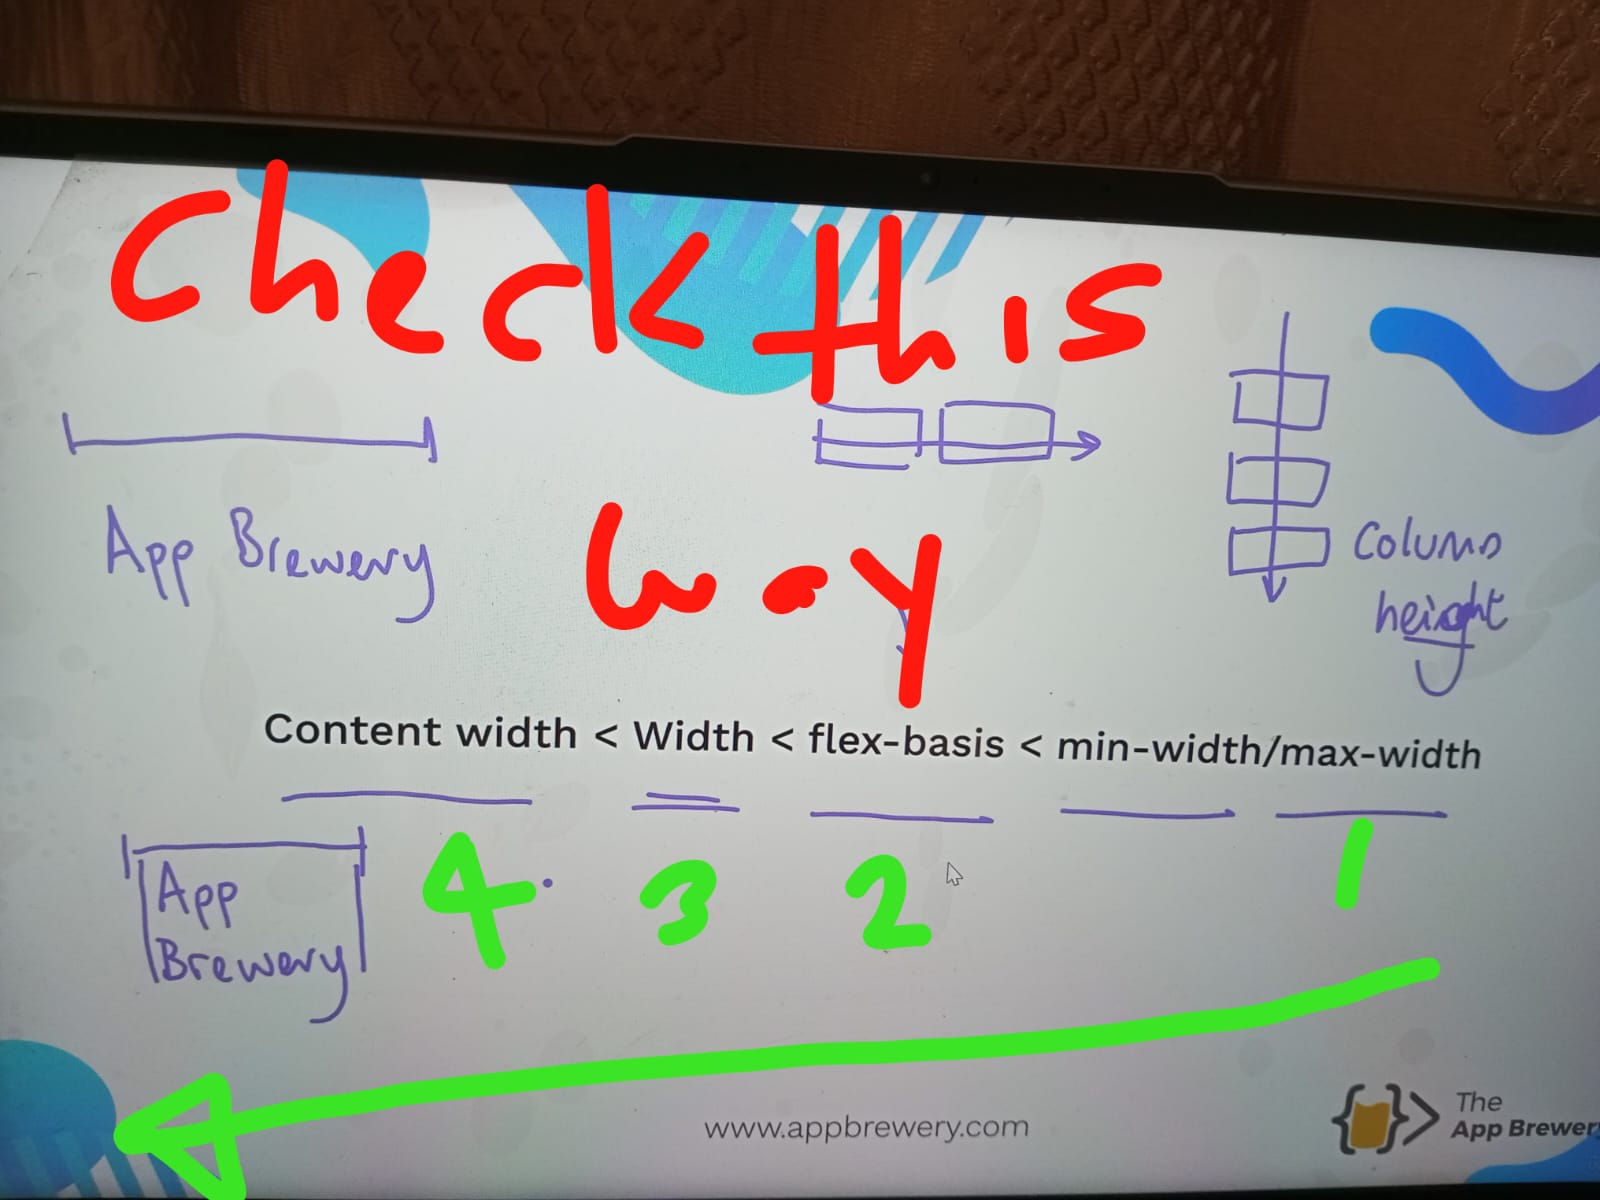 check this
App Brewery
way
Column
height
Content width < Width < flex-basis < min-width/max-width
4 3 2 1
App
Brewery
www.appbrewery.com
The
App Brewery